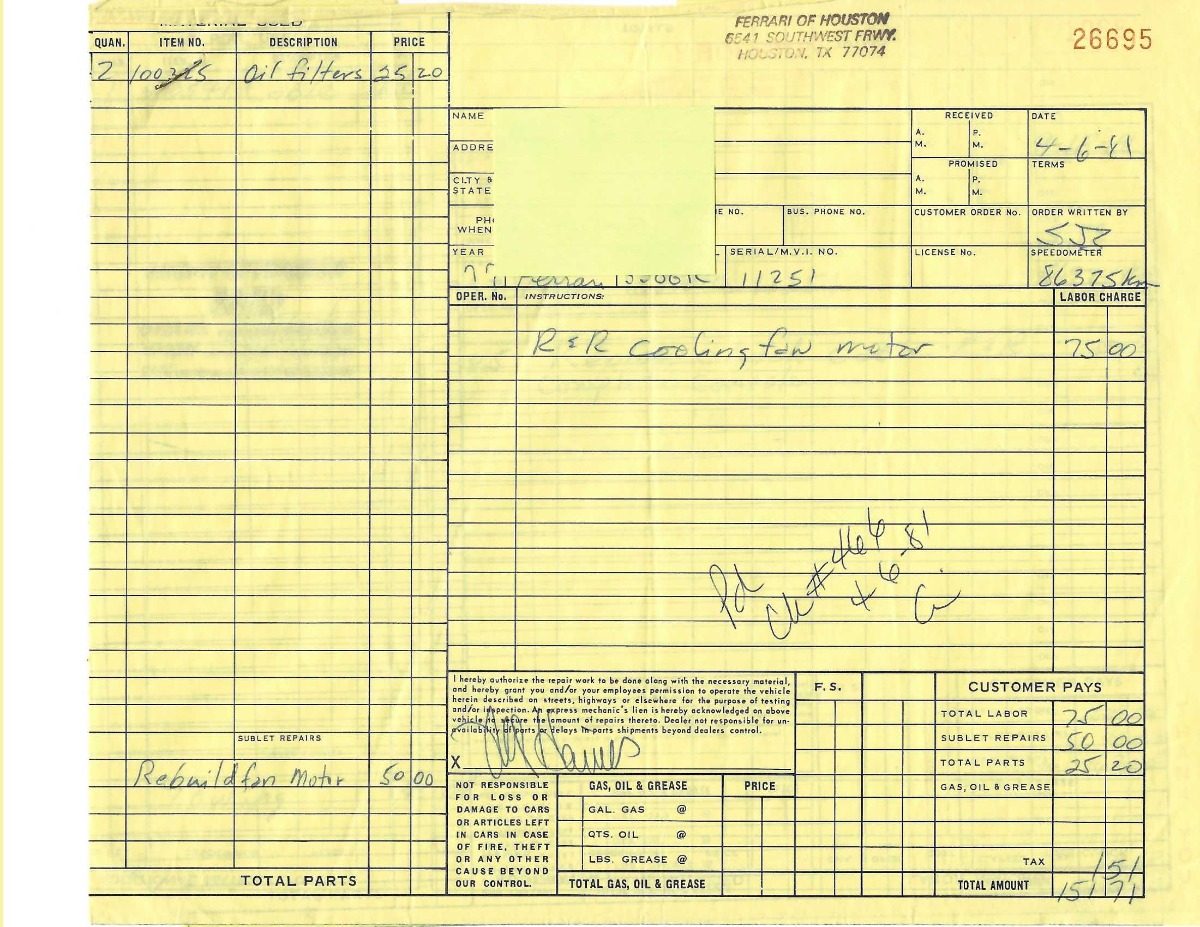 MATERIAL USED
QUAN. ITEM NO. DESCRIPTION PRICE
2 100325 Oil filters 25 20
FERRARI OF HOUSTON
6541 SOUTHWEST FRWY.
HOUSTON, TX 77074
26695
NAME
RECEIVED
A. M. P. M.
DATE
4-6-81
ADDRE
PROMISED
A. M. P. M.
TERMS
CITY &
STATE
PH
WHEN
E NO.
BUS. PHONE NO.
CUSTOMER ORDER No.
ORDER WRITTEN BY
YEAR
SERIAL/M.V.I. NO.
LICENSE No.
SPEEDOMETER
77 Ferrari 11251 86375km
OPER. No. INSTRUCTIONS: LABOR CHARGE
R & R cooling fan motor 75 00
Pd
Ck # 466
4 6 81
SUBLET REPAIRS
Rebuild fan Motor 50 00
TOTAL PARTS
I hereby authorize the repair work to be done along with the necessary material,
and hereby grant you and/or your employees permission to operate the vehicle
herein described on streets, highways or elsewhere for the purpose of testing
and/or inspection. An express mechanic's lien is hereby acknowledged on above
vehicle to secure the amount of repairs thereto. Dealer not responsible for un-
availability of parts or delays in parts shipments beyond dealers control.
X
NOT RESPONSIBLE
FOR LOSS OR
DAMAGE TO CARS
OR ARTICLES LEFT
IN CARS IN CASE
OF FIRE, THEFT
OR ANY OTHER
CAUSE BEYOND
OUR CONTROL.
GAS, OIL & GREASE PRICE
GAL. GAS @
QTS. OIL @
LBS. GREASE @
TOTAL GAS, OIL & GREASE
F. S.
CUSTOMER PAYS
TOTAL LABOR 75 00
SUBLET REPAIRS 50 00
TOTAL PARTS 25 20
GAS, OIL & GREASE
TAX 1 51
TOTAL AMOUNT 151 71